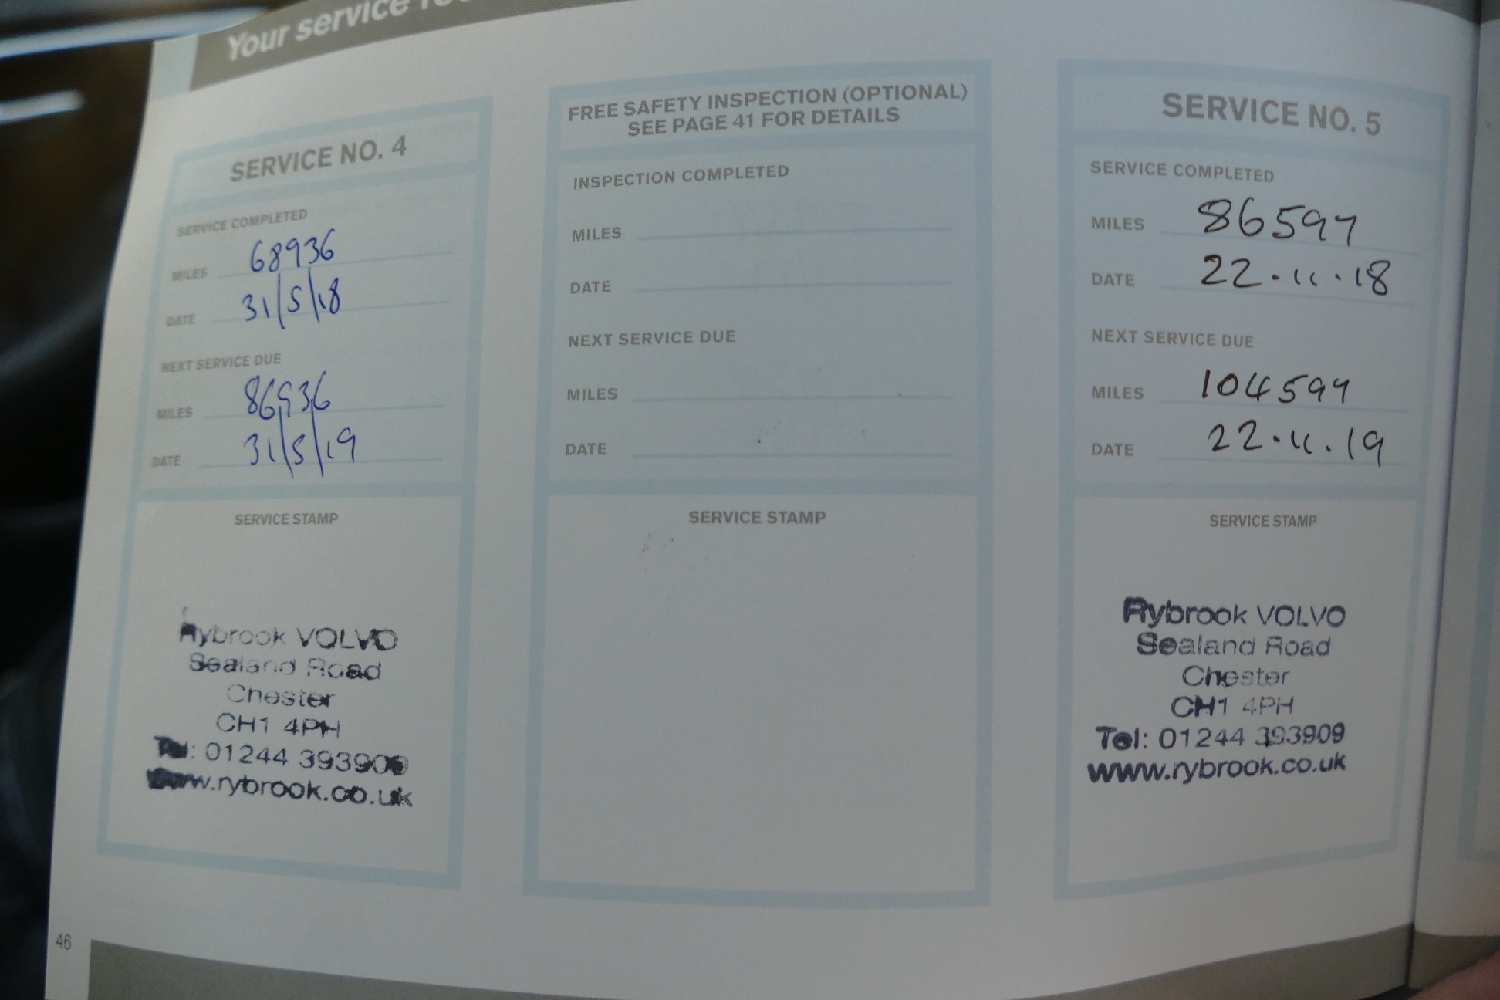 Your service
SERVICE NO. 4
SERVICE COMPLETED
MILES 68936
DATE 31/5/18
NEXT SERVICE DUE
MILES 86936
DATE 31/5/19
SERVICE STAMP
Rybrook VOLVO
Sealand Road
Chester
CH1 4PH
Tel: 01244 393909
www.rybrook.co.uk
FREE SAFETY INSPECTION (OPTIONAL)
SEE PAGE 41 FOR DETAILS
INSPECTION COMPLETED
MILES
DATE
NEXT SERVICE DUE
MILES
DATE
SERVICE STAMP
SERVICE NO. 5
SERVICE COMPLETED
MILES 86597
DATE 22.11.18
NEXT SERVICE DUE
MILES 104597
DATE 22.11.19
SERVICE STAMP
Rybrook VOLVO
Sealand Road
Chester
CH1 4PH
Tel: 01244 393909
www.rybrook.co.uk
46